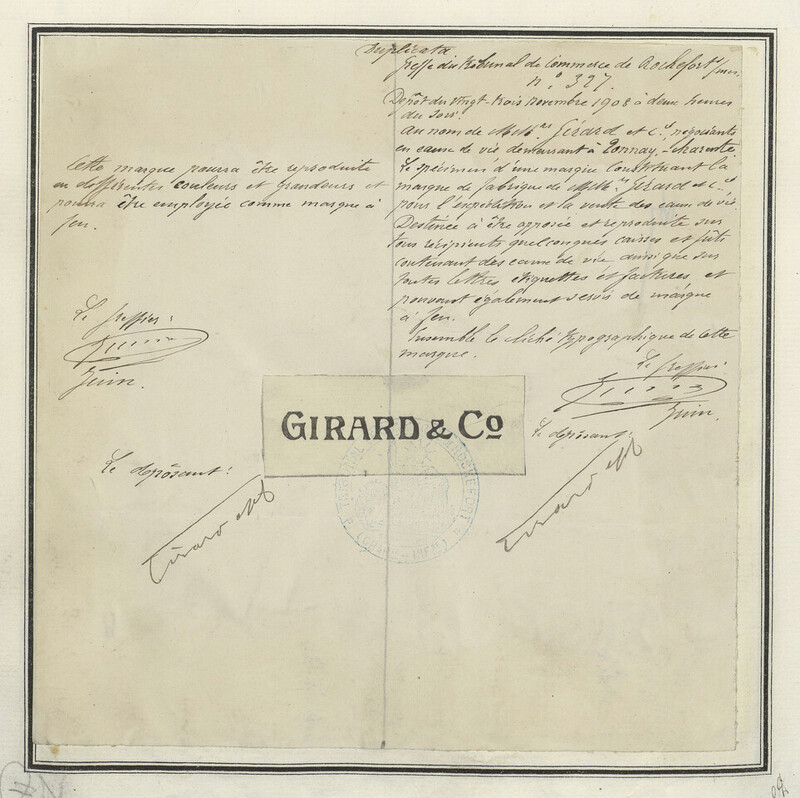 Duplicata
Greffe du tribunal de Commerce de Rochefort s/mer.
n.º 327.
Dépôt du vingt-trois novembre 1908 à deux heures
du soir.
au nom de MM.rs Girard et C.ie négociants
en eaux de vie demeurant à Tonnay-Charente
Le spécimen d'une marque constituant la
marque de fabrique de MM.rs Girard et C.ie
pour l'expédition et la vente des eaux de vie
Destinée à être apposée et reproduite sur
tous récipients quelconques caisses et fûts
contenant des eaux de vie ainsi que sur
toutes lettres étiquettes et factures, et
pouvant également servir de marque
à feu.
Ensemble le cliché typographique de cette
marque.
Le Greffier:
Le déposant:
Girard et C
Cette marque pourra être reproduite
en différentes couleurs et grandeurs et
pourra être employée comme marque à
feu.
Le Greffier:
Le déposant:
Girard et C
GIRARD & Co